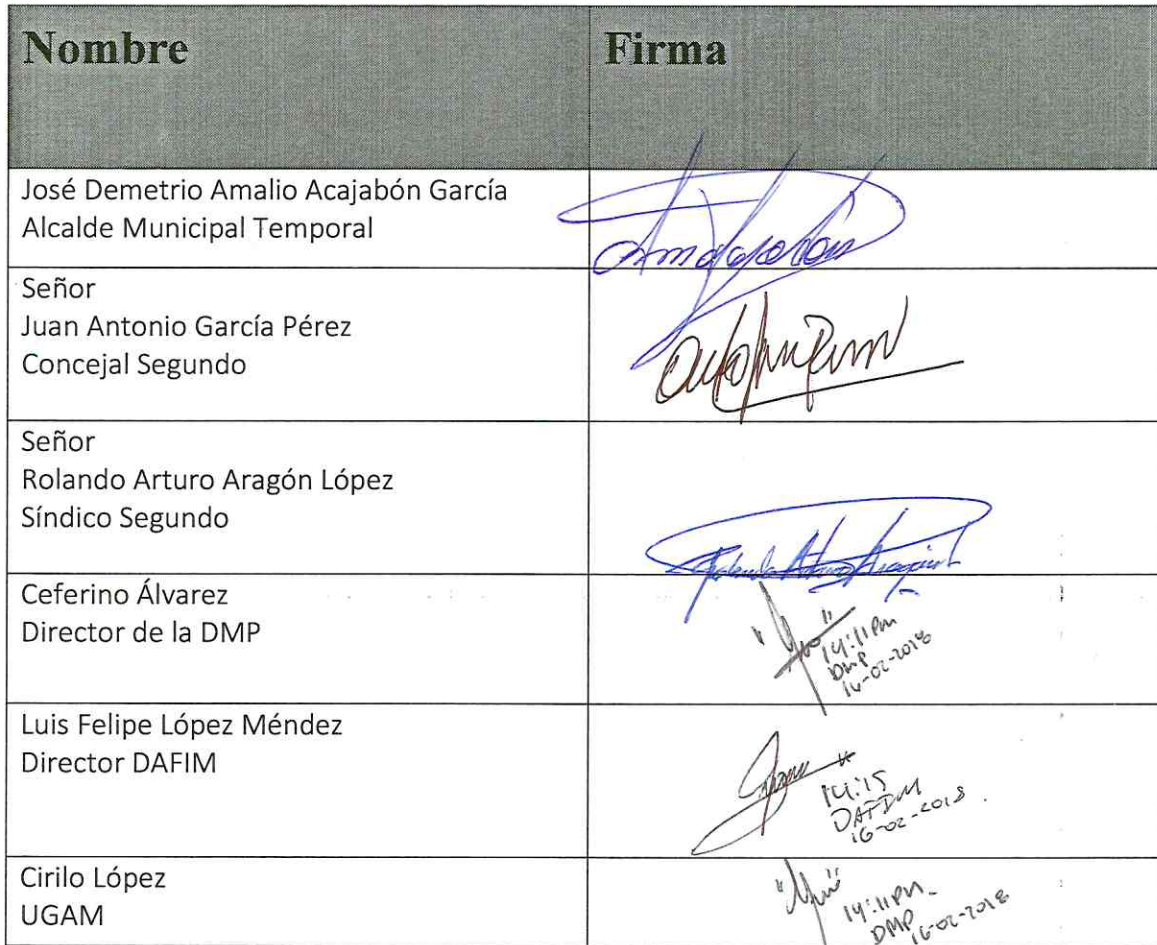 Nombre
Firma
José Demetrio Amalio Acajabón García
Alcalde Municipal Temporal
Señor
Juan Antonio García Pérez
Concejal Segundo
Señor
Rolando Arturo Aragón López
Síndico Segundo
Rolando Arturo Aragón L
Ceferino Álvarez
Director de la DMP
14:11 PM
DMP
16-02-2018
Luis Felipe López Méndez
Director DAFIM
14:15
DAFIM
16-02-2018
Cirilo López
UGAM
14:11 PM
DMP
16-02-2018